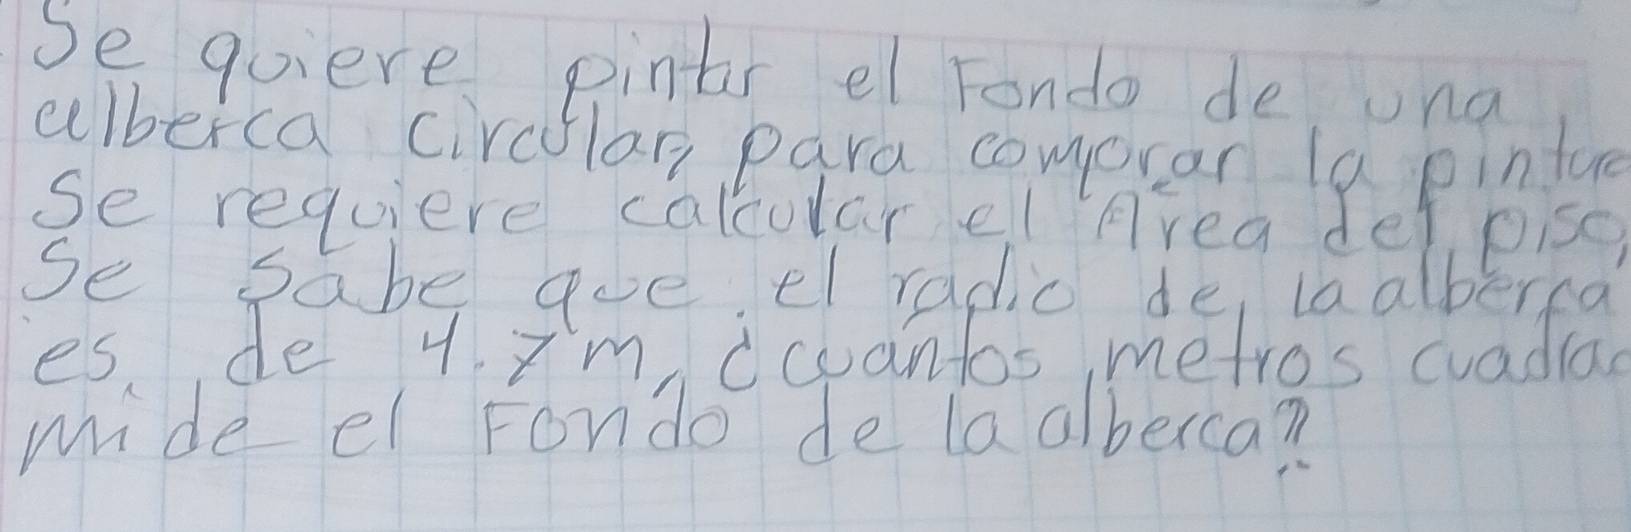 Se quiere pintar el Fondo de una
alberca circular, para comprar la pintura
se requiere calcular el Área del piso,
se sabe que el radio de la alberca
es de 4.7 m, ¿cuantos metros cuadrad
mide el Fondo de la alberca?